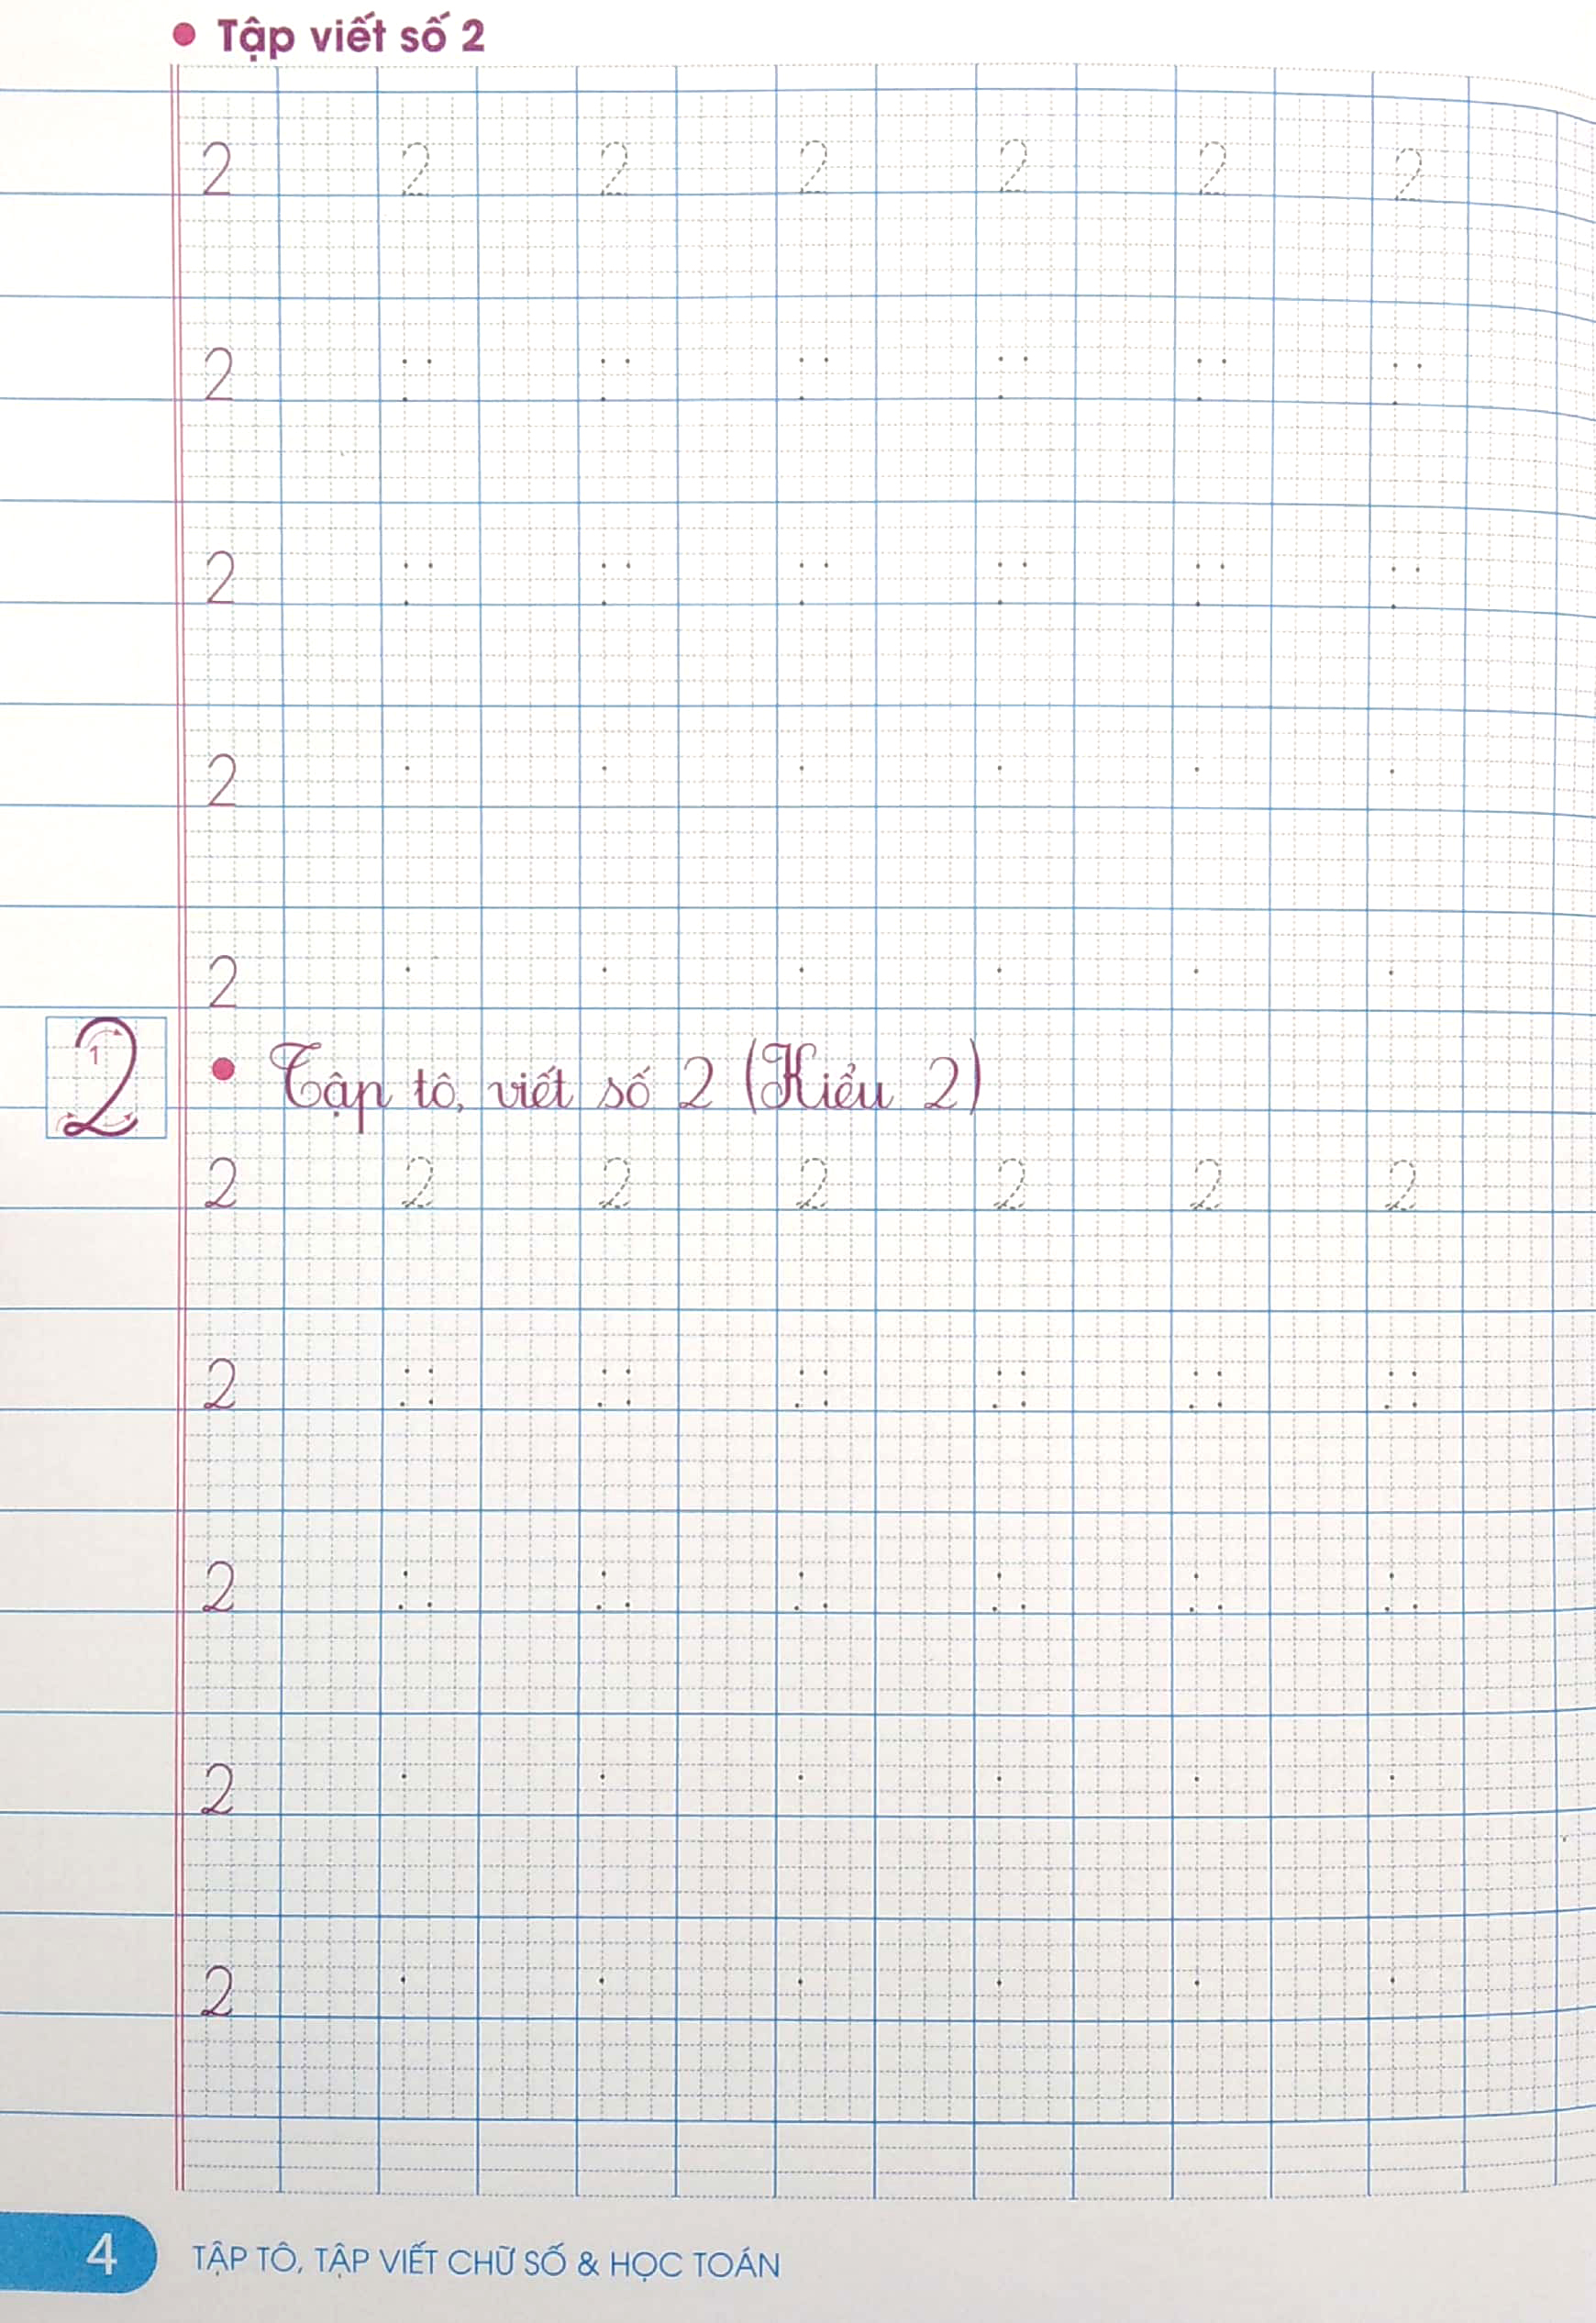 Tập viết số 2
2 2 2 2 2 2 2
2
2
2
2
2 1
Tập tô, viết số 2 (Kiểu 2)
2 2 2 2 2 2 2
2
2
2
2
4 TẬP TÔ, TẬP VIẾT CHỮ SỐ & HỌC TOÁN